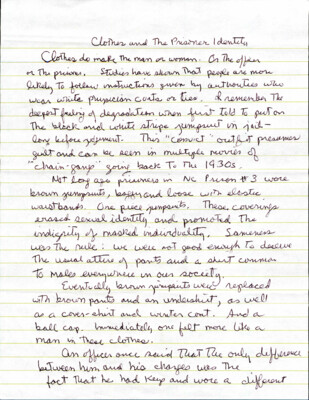 Clothes and The Prisoner Identity
Clothes do make the man or woman. Or the officer
or the prisoner. Studies have shown that people are more
likely to follow instructions given by authorities who
wear white physician coats or ties. I remember the
deepest feeling of degradation when first told to put on
the black and white stripe jumpsuit in jail-
long before judgement. This "convict" outfit presumes
guilt and can be seen in multiple movies of
"chain-gangs" going back To the 1930s.
Not long ago prisoners in NC Prison #3 wore
brown jumpsuits, baggy and loose with elastic
waistbands. One piece jumpsuits. These coverings
erased sexual identity and promoted The
indignity of masked individuality. Sameness
was the rule: we were not good enough to deserve
The usual attire of pants and a shirt common
to males everywhere in our society.
Eventually brown jumpsuits were replaced
with brown pants and an undershirt, as well
as a cover-shirt and winter coat. And a
ball cap. Immediately one felt more like a
man in These clothes.
An officer once said That the only difference
between him and his charges was the
fact that he had keys and wore a different